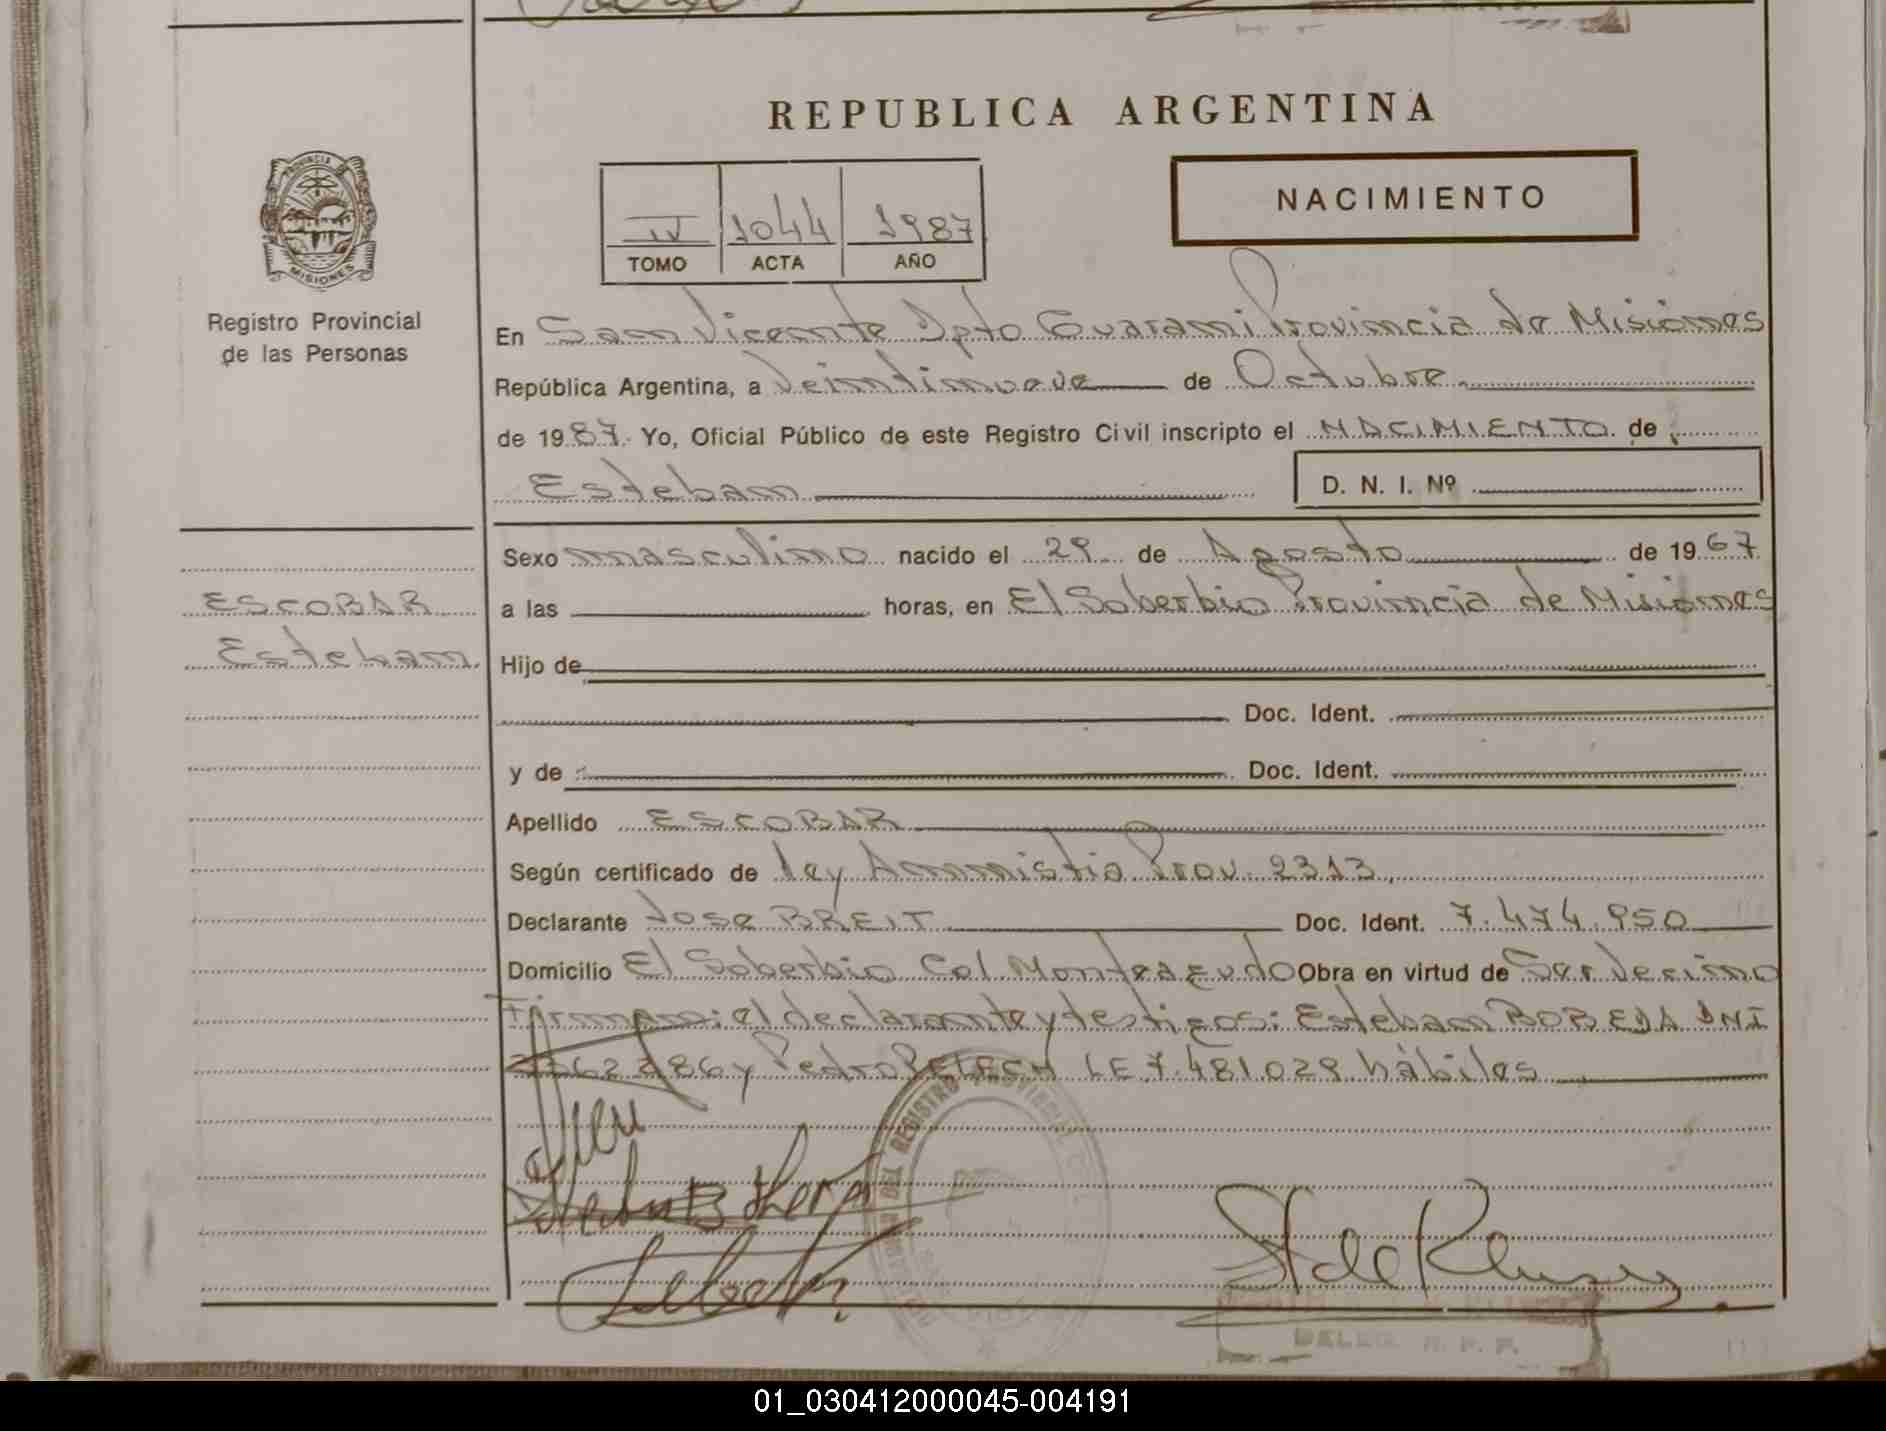 REPUBLICA ARGENTINA
PROVINCIA DE
MISIONES
Registro Provincial
de las Personas
IV 1044 1987
TOMO ACTA AÑO
NACIMIENTO
En San Vicente Dpto Guarani Provincia de Misiones
República Argentina, a Veintinueve de Octubre
de 1987. Yo, Oficial Público de este Registro Civil inscripto el NACIMIENTO de
Esteban D. N. I. Nº
Sexo masculino nacido el 29 de Agosto de 1967
ESCOBAR
Esteban
a las horas, en El Soberbio Provincia de Misiones
Hijo de
Doc. Ident.
y de Doc. Ident.
Apellido ESCOBAR
Según certificado de ley Amnistia Prov. 2313
Declarante Jose BREIT Doc. Ident. 7.474.950
Domicilio El Soberbio Col Monteagudo Obra en virtud de Ser Vecino
Firman: el declarante y testigos: Esteban DNI
y Pedro PELECH LE 7.481.029 hàbiles
DEL REGISTRO PROVINCIAL
DELEG. R. P. P.
01_030412000045-004191